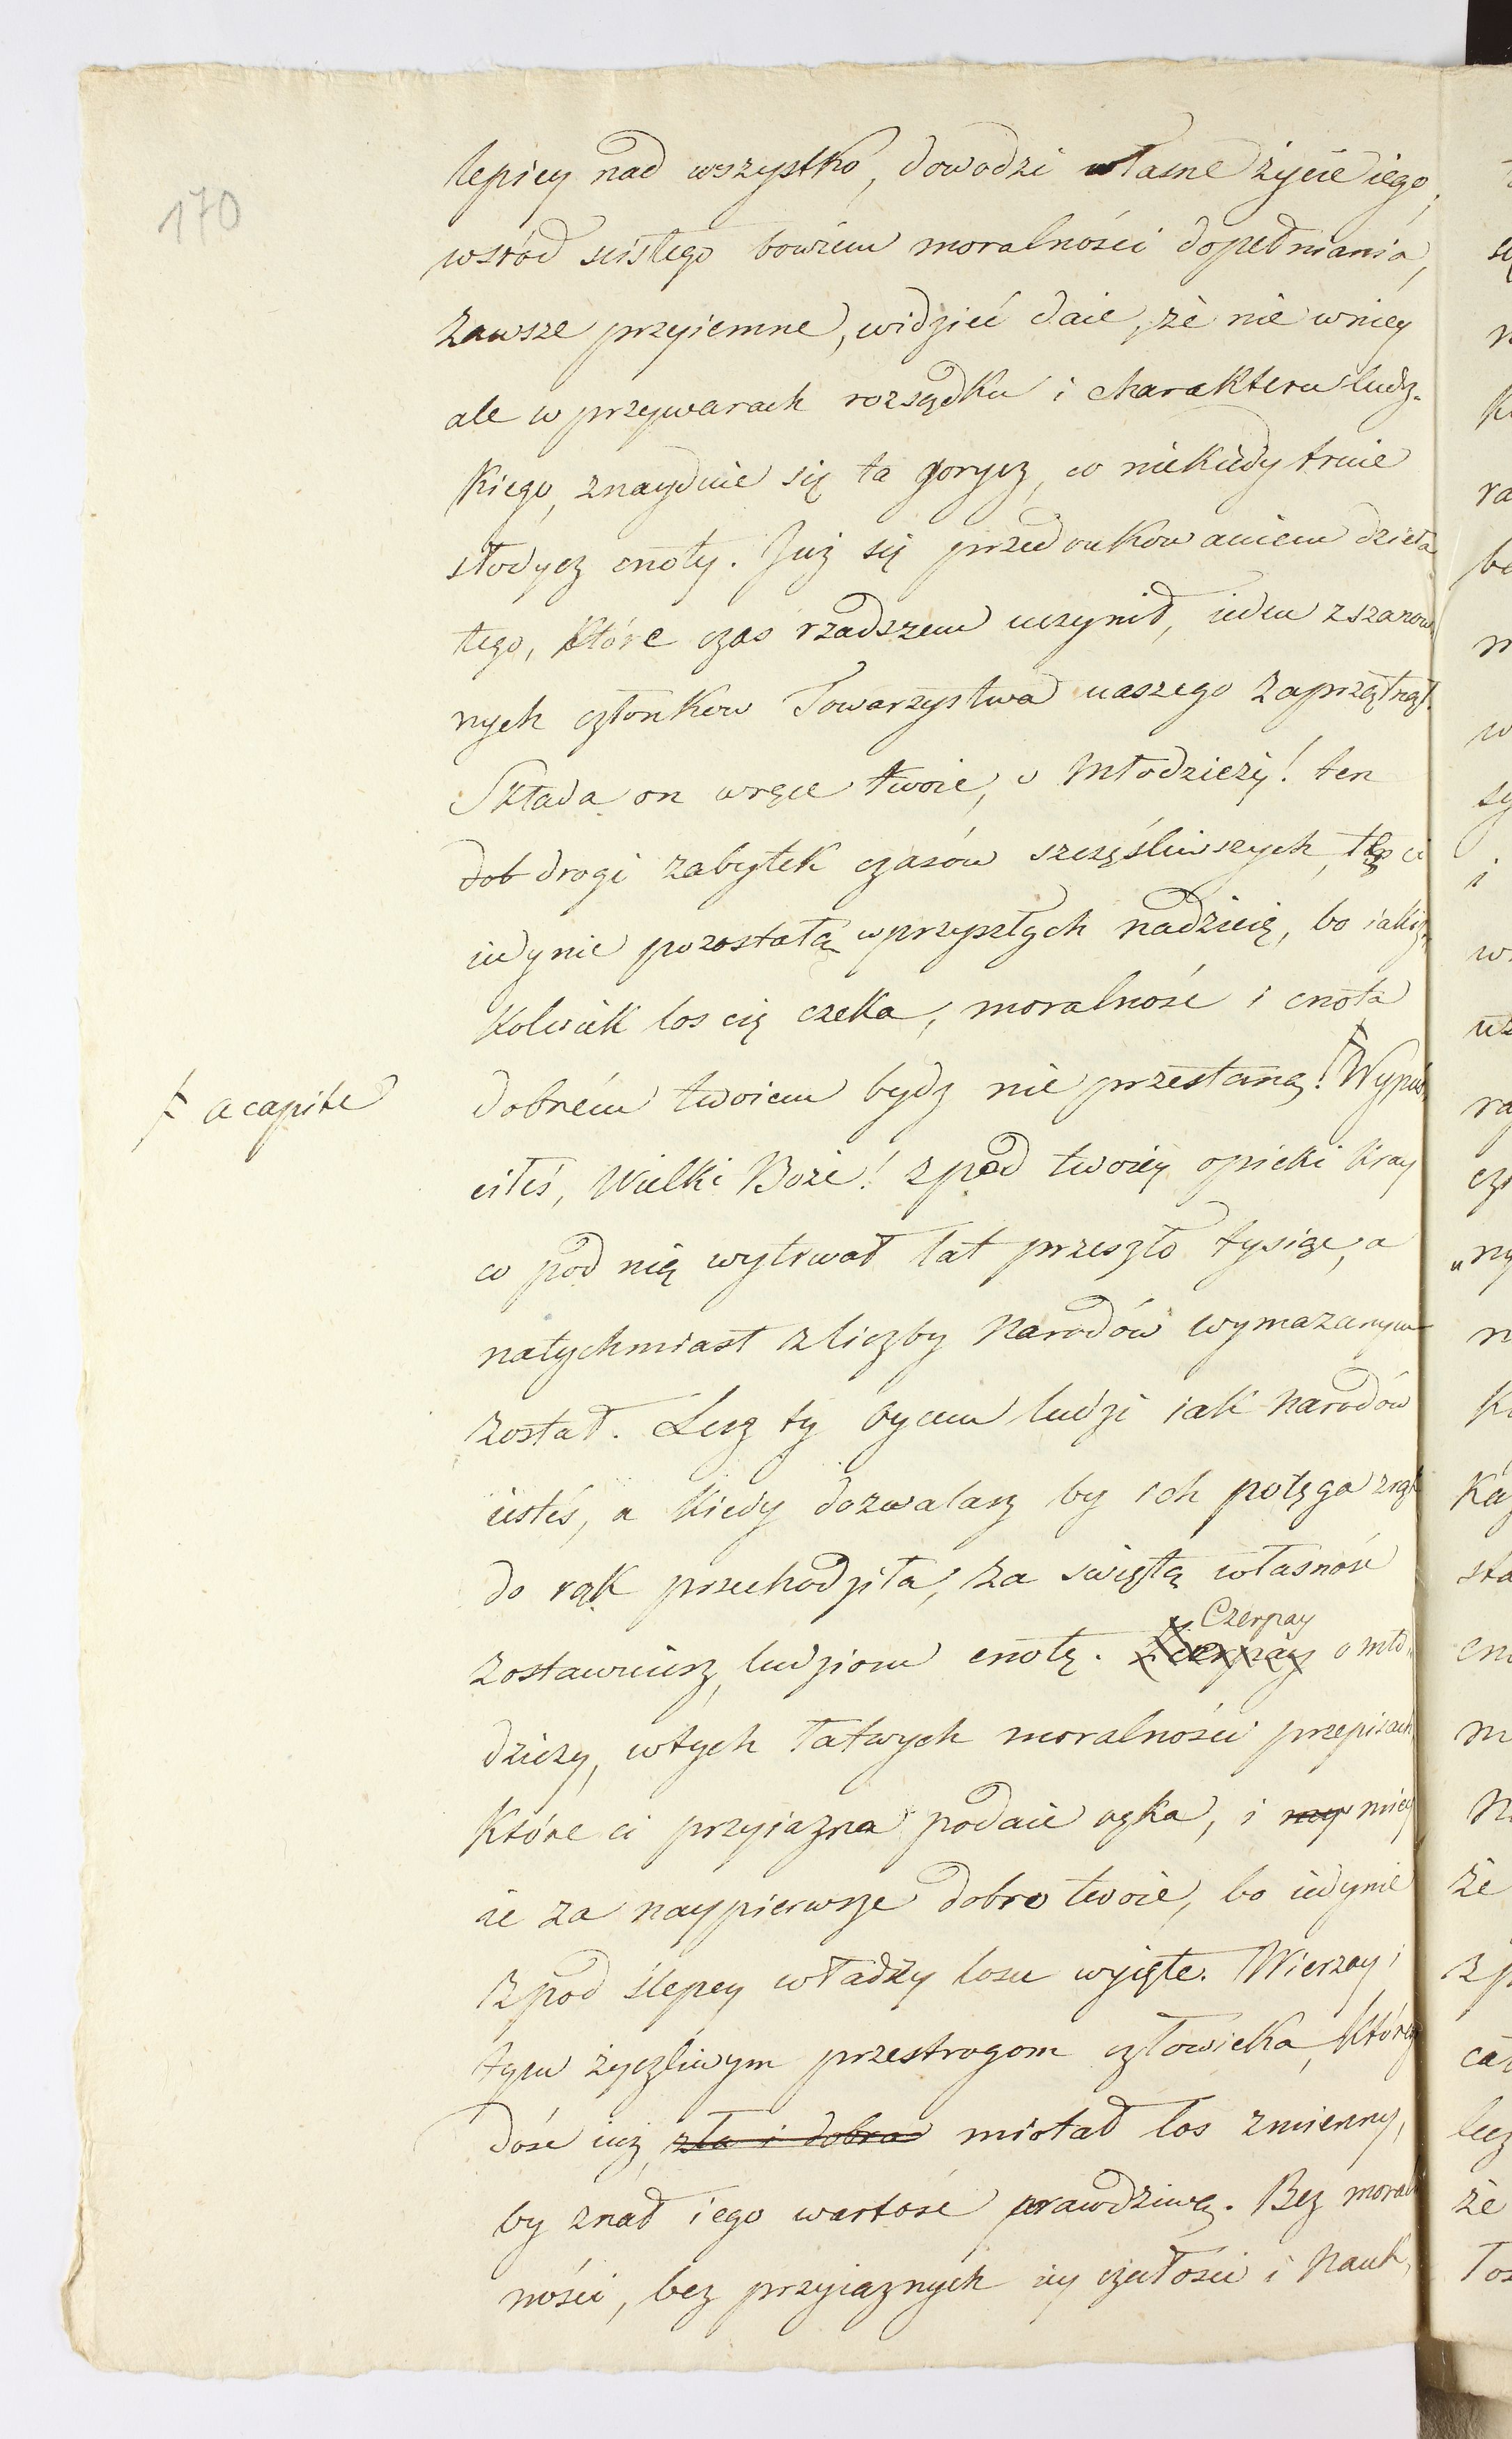 170
lepiey nad wszystko, dowodzi własne życie iego,
wsród scisłego bowiem moralności dopełniania,
zawsze przyiemne, widzieć daie, że nie wniey
ale w przywarach rozsądku i charakteru ludz-
kiego, znayduie się ta gorycz, co niekiedy truie
słodycz cnoty. Już się przedrukowaniem dzieła
tego, które czas rzadszem uczynił, ieden z szanow
nych członków Towarzystwa naszego zaprzątnął.
Składa on wręce twoie, o Młodzieży! ten
dob drogi zabytek czasów szczęśliwszych, tę ci
iedynie pozostałą w przyszłych nadzieię, bo iakiż
kolwiek los cię czeka, moralność i cnota
dobrém twoiem bydz nie przestaną! Wypuś
ƒ a capite
ciłeś, Wielki Boże! z pod twoiéy opieki kray
co pod nią wytrwał lat przeszło tysiąc, a
natychmiast z liczby Narodów wymazanym
został. Lecz ty oycem ludzi iak Narodów
iesteś, a kiedy dozwalasz by ich potęga z rąk
do rąk przechodziła, za świętą własność
zostawuiesz ludziom cnotę. Czerpay o mło
dzieży, w tych łatwych moralności przepisach
które ci przyiazna podaie ręka, i miey
ie za naypierwsze dobro twoie, bo iedynie
z pod ślepey władzy losu wyięte. Wierzay i
tym życzliwym przestrogom człowieka, którego
dość iuż, zła i dobra miotał los zmienny,
by znał iego wartość prawdziwą. Bez moral
ności, bez przyiaznych iey czułości i Nauk,